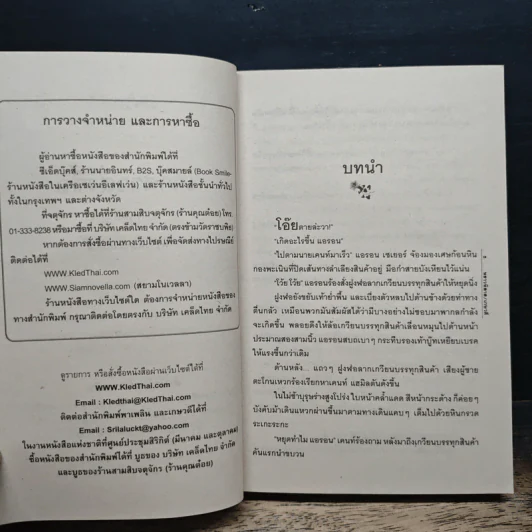 การวางจำหน่าย และการหาซื้อ
ผู้อ่านหาซื้อหนังสือของสำนักพิมพ์ได้ที่
ซีเอ็ดบุ๊คส์, ร้านนายอินทร์, B2S, บุ๊คสมายล์ (Book Smile-
ร้านหนังสือในเครือเซเว่นอีเลฟเว่น) และร้านหนังสือชั้นนำทั่วไป
ทั้งในกรุงเทพฯ และต่างจังหวัด
ที่จตุจักร หาซื้อได้ที่ร้านสามสิบจตุจักร (ร้านคุณต๋อย) โทร.
01-333-8238 หรือมาซื้อที่ บริษัท เคล็ดไทย จำกัด (ตรงข้ามวัดราชบพิธ)
หากต้องการสั่งซื้อผ่านทางเว็บไซต์ เพื่อจัดส่งทางไปรษณีย์
ติดต่อได้ที่
WWW.KledThai.com
WWW.Siamnovella.com (สยามโนเวลลา)
ร้านหนังสือทางเว็บไซต์ใด ต้องการจำหน่ายหนังสือของ
ทางสำนักพิมพ์ กรุณาติดต่อโดยตรงกับ บริษัท เคล็ดไทย จำกัด
ดูรายการ หรือสั่งซื้อหนังสือผ่านเว็บไซต์ได้ที่
WWW.KledThai.com
Email : Kledthai@KledThai.com
ติดต่อสำนักพิมพ์พาเพลิน และเกษวดีได้ที่
Email : Srilaluckt@yahoo.com
ในงานหนังสือแห่งชาติที่ศูนย์ประชุมสิริกิต์ (มีนาคม และตุลาคม)
ซื้อหนังสือของสำนักพิมพ์ได้ที่ บูธของ บริษัท เคล็ดไทย จำกัด
และบูธของร้านสามสิบจตุจักร (ร้านคุณต๋อย)
บทนำ
"โอ๊ยตายล่ะวา!"
"เกิดอะไรขึ้น แอรอน"
"ไปตามนายเคนท์มาเร็ว" แอรอน เซเยอร์ จ้องมองเศษก้อนหิน
กองพะเนินที่ปิดเส้นทางลำเลียงสินค้าอยู่ มือกำสายบังเหียนไว้แน่น
"โว้ย โว้ย" แอรอนร้องสั่งฝูงฬ่อลากเกวียนบรรทุกสินค้าให้หยุดนิ่ง
ฝูงฬ่อยังขยับเท้าย่ำพื้น และเบี่ยงตัวหลบไปด้านข้างด้วยท่าทาง
ตื่นกลัว เหมือนพวกมันสัมผัสได้ว่ามีบางอย่างไม่ชอบมาพากลกำลัง
จะเกิดขึ้น พลอยดึงให้ล้อเกวียนบรรทุกสินค้าเลื่อนหมุนไปด้านหน้า
ประมาณสองสามนิ้ว แอรอนสบถเบาๆ กระทืบรองเท้าบู๊ทเหยียบเบรค
ให้แรงขึ้นกว่าเดิม
ด้านหลัง... แถวๆ ฝูงฬ่อลากเกวียนบรรทุกสินค้า เสียงผู้ชาย
ตะโกนเหวกร้องเรียกหาเคนท์ แฮมิลตันดังขึ้น
ในไม่ช้าบุรุษร่างสูงโปร่ง ใบหน้าคล้ำแดด สีหน้ากระด้าง ก็ค่อยๆ
บังคับม้าเดินแหวกผ่านขึ้นมาตามทางเดินแคบๆ เต็มไปด้วยหินกรวด
ระเกะระกะ
"หยุดทำไม แอรอน" เคนท์ร้องถาม หลังมาถึงเกวียนบรรทุกสินค้า
คันแรกนำขบวน